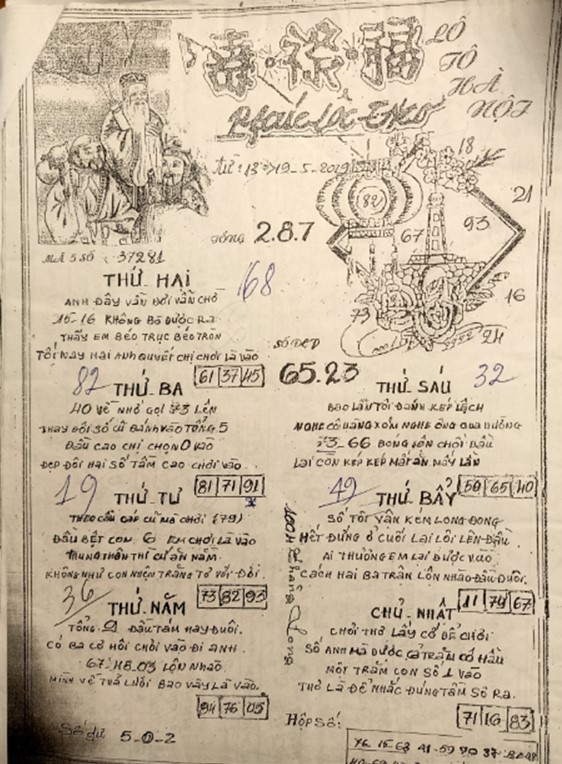 壽·祿·福
LÔ
TÔ
HÀ
NỘI
Phúc Lộc Thọ
Từ: 13 => 19-5-2019
18
82
21
67
93
TỔNG 2.8.7
MÃ 5 SỐ : 37281
16
73
24
THỨ HAI
168
ANH ĐÂY VẪN ĐỢI VẪN CHỜ
15-16 KHÔNG BỎ ĐƯỢC RA
THẤY EM BÉO TRỤC BÉO TRÒN
TỐI NAY HAI ANH QUYẾT CHỊ CHƠI LÀ VÀO
61 37 45
SỐ ĐẸP
65.23
82
THỨ BA
40 VỀ NHỚ GỌI 73 LÊN
THAY ĐỔI SỐ CŨ ĐÁNH VÀO TỔNG 5
ĐẦU CAO CHỈ CHỌN 0 VÀO
ĐẸP ĐÔI HẠI SỐ TÁM CAO CHƠI VÀO
81 71 91
19
THỨ TƯ
CŨ MÀ CHƠI (79)
ĐẦU BẾT CON 6 EM CHƠI LÀ VÀO
TRUNG THÂN THÌ CỨ ĂN NĂM
KHÔNG NHƯ CON NHỆN TRĂNG TƠ VỚI ĐỜI.
73 82 93
36
THỨ NĂM
TỔNG 2 ĐẦU TÁM HAY ĐUÔI.
CÓ BA CƠ HỘI CHƠI VÀO ĐI ANH
67 48.03 LỘN NHÀO
MÌNH VỀ THẢ LƯỚI BAO VÂY LÀ VÀO.
94 76 05
SỐ DƯ 5-0-2
THỨ SÁU
32
BAO LẦN TÔI ĐÁNH KÉP LỆCH
NGHE CÔ HÀNG XÓM NGHE ÔNG QUA ĐƯỜNG
73-66 BONG LỘN CHƠI ĐẦU
LẠI CÒN KÉP KÉP MẤT ĂN MẤY LẦN
50 65 40
49
THỨ BẨY
SỐ TÔI VẪN KÉM LONG ĐONG
HẾT ĐỨNG Ở CUỐI LẠI LÔI LÊN ĐẦU
AI THƯƠNG EM LẠI ĐƯỢC VÀO
CÁCH HAI BA TRẬN LỘN NHÀO ĐẦU ĐUÔI.
11 74 67
CHỦ NHẬT
CHƠI THƠ LẤY CỚ ĐỂ CHƠI
SỐ ANH MÀ ĐƯỢC CẢ TRẦN CÓ HẦU
MỘT TRĂM CON SỐ 1 VÀO
THƠ LÀ ĐỂ NHẮC ĐÚNG TẦM SỐ RA.
71 16 83
HỘP SỐ: